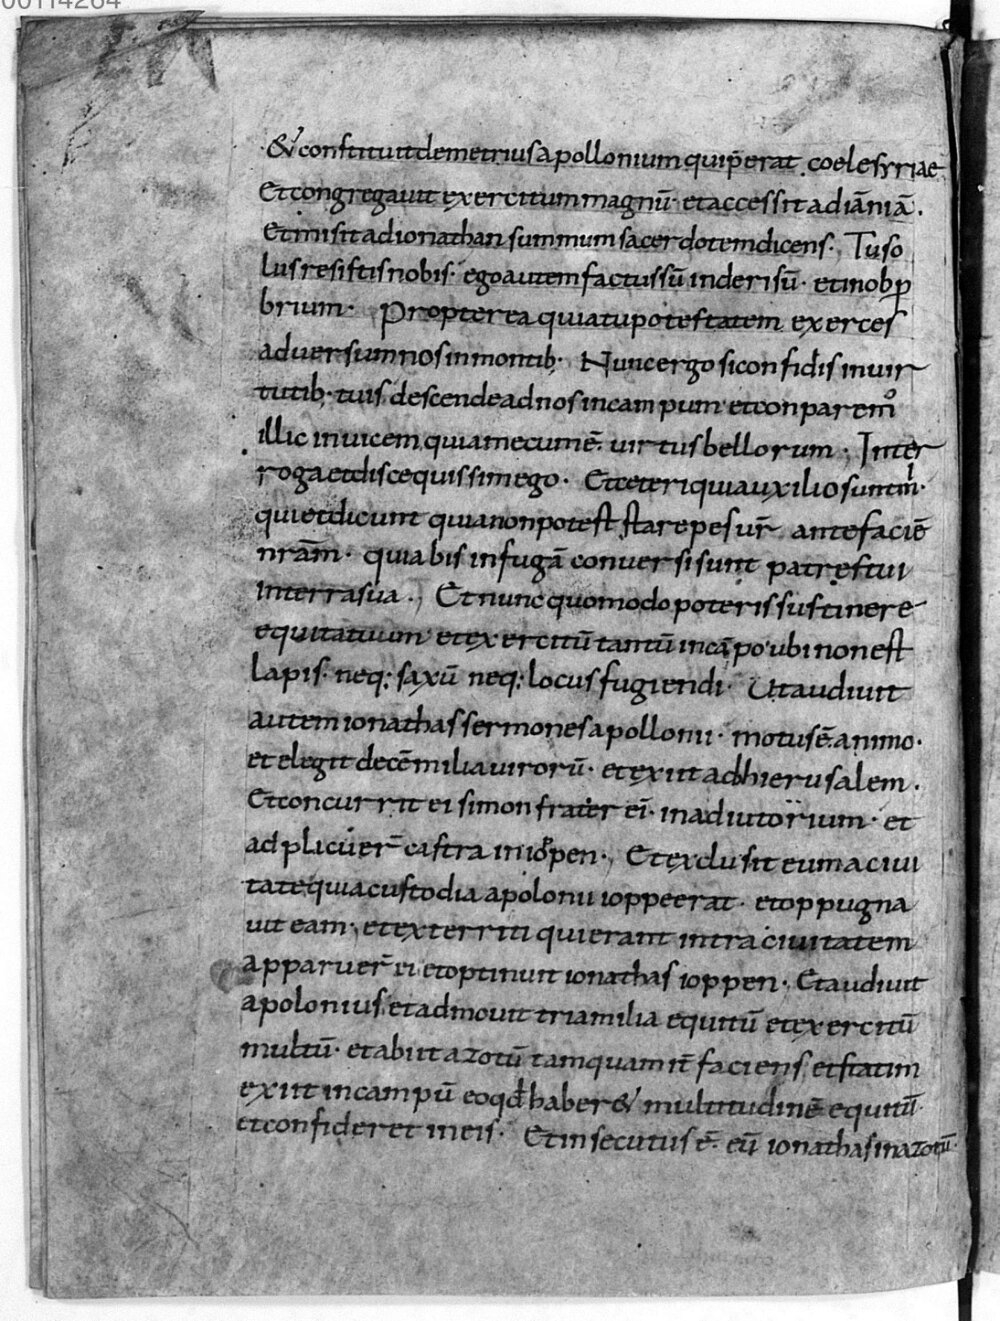 00114264
& constituit demetrius apollonium qui p̄erat coelesyriae
Et congregauit exercitum magnū· et accessit ad iāniā.
Et misit ad ionathan summum sacerdotem dicens· Tu so
lus resistis nobis· ego autem factus sū in derisū· et in obp
brium· Propterea quia tu potestatem exerces
aduersum nos in montib;· Nunc ergo si confidis in uir
tutib;· tuis descende ad nos in campum· et conparemº
illic inuicem quia mecum ē· uirtus bellorum· Inter
roga et disce quis sim ego· Et ceteri qui auxilio sunt m̄·
qui et dicunt quia non potest stare pes ur̄ ante faciē
nrām· quia bis in fugā conuersi sunt patres tui
in terra sua· Et nunc quomodo poteris sustinere
equitatuum et exercitū tantū in cāpo· ubi non est
lapis· neq; saxū neq; locus fugiendi· Ut audiuit
autem ionathas sermones apollonii· motus ē animo·
et elegit decē milia uirorū· et exiit ab hierusalem.
Et concurrit ei simon frater ei· in adiutorium· et
adplicuer̄ castra in ioppen· Et exclusit eum a ciui
tate quia custodia apolonii ioppe erat· et oppugna
uit eam· et exterriti qui erant intra ciuitatem
apparuer̄ ei et optinuit ionathas ioppen· Et audiuit
apolonius et admouit tria milia equitū et exercitū
multū· et abiit azotū tamquam it̄ faciens et statim
exiit in campū eo qd haber& multitudinē equitū·
et confideret in eis· Et insecutus ē· eū ionathas in azotū·